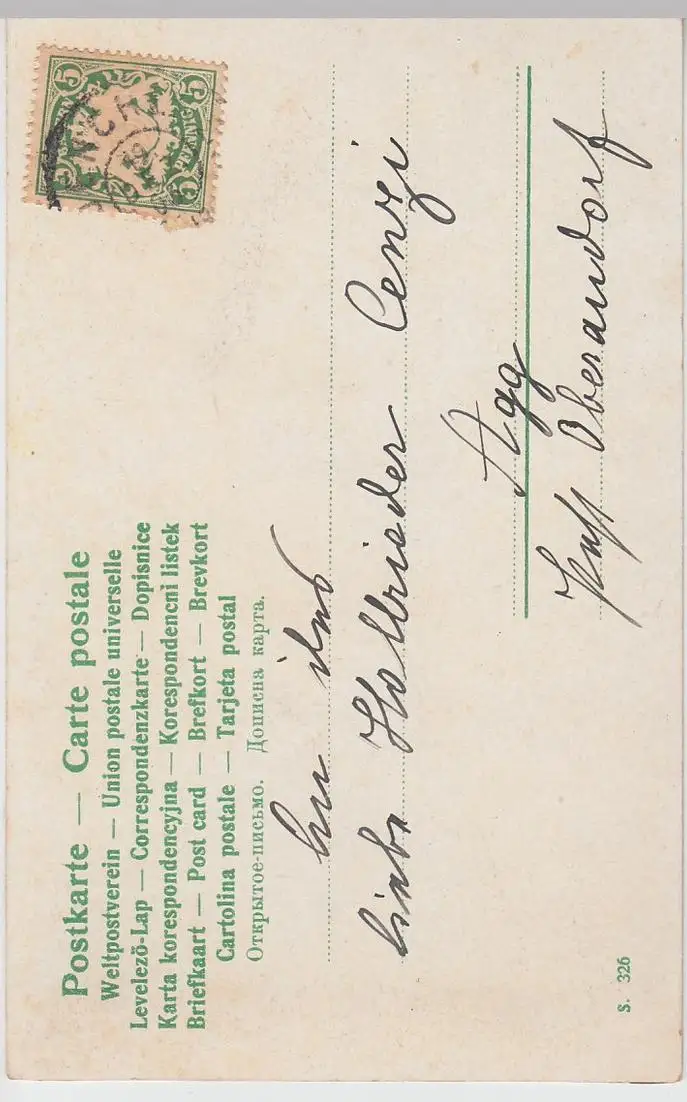 Postkarte — Carte postale
Weltpostverein — Union postale universelle
Levelező-Lap — Correspondenzkarte — Dopisnice
Karta korespondencyjna — Korespondencni listek
Briefkaart — Post card — Brefkort — Brevkort
Cartolina postale — Tarjeta postal
Открытое-письмо. Дописна карта.
5 5
PFENNIG
5 5
An ihrs
liebe Hollrieder Cenzi
Agg
Post Oberaudorf
S. 326